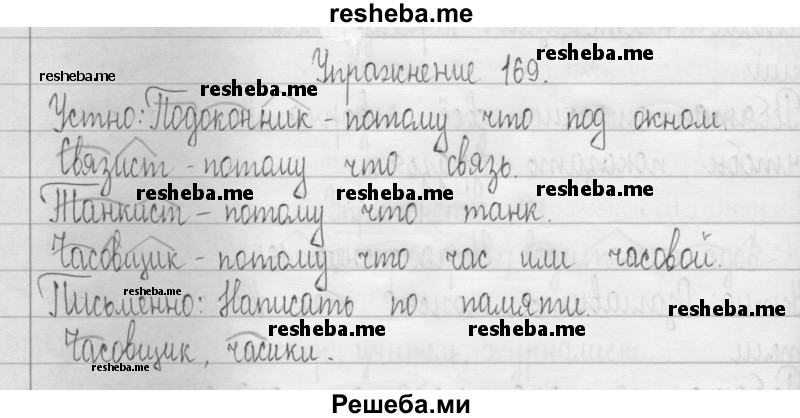 resheba.me
Упражнение 169.
resheba.me
resheba.me
resheba.me
Устно: Подоконник - потому что под окном.
Связист - потому что связь.
resheba.me
resheba.me
resheba.me
Танкист - потому что танк.
Часовщик - потому что час или часовой.
resheba.me
Письменно: Написать по памяти.
resheba.me
resheba.me
resheba.me
Часовщик, часики.
resheba.me
Решеба.ми